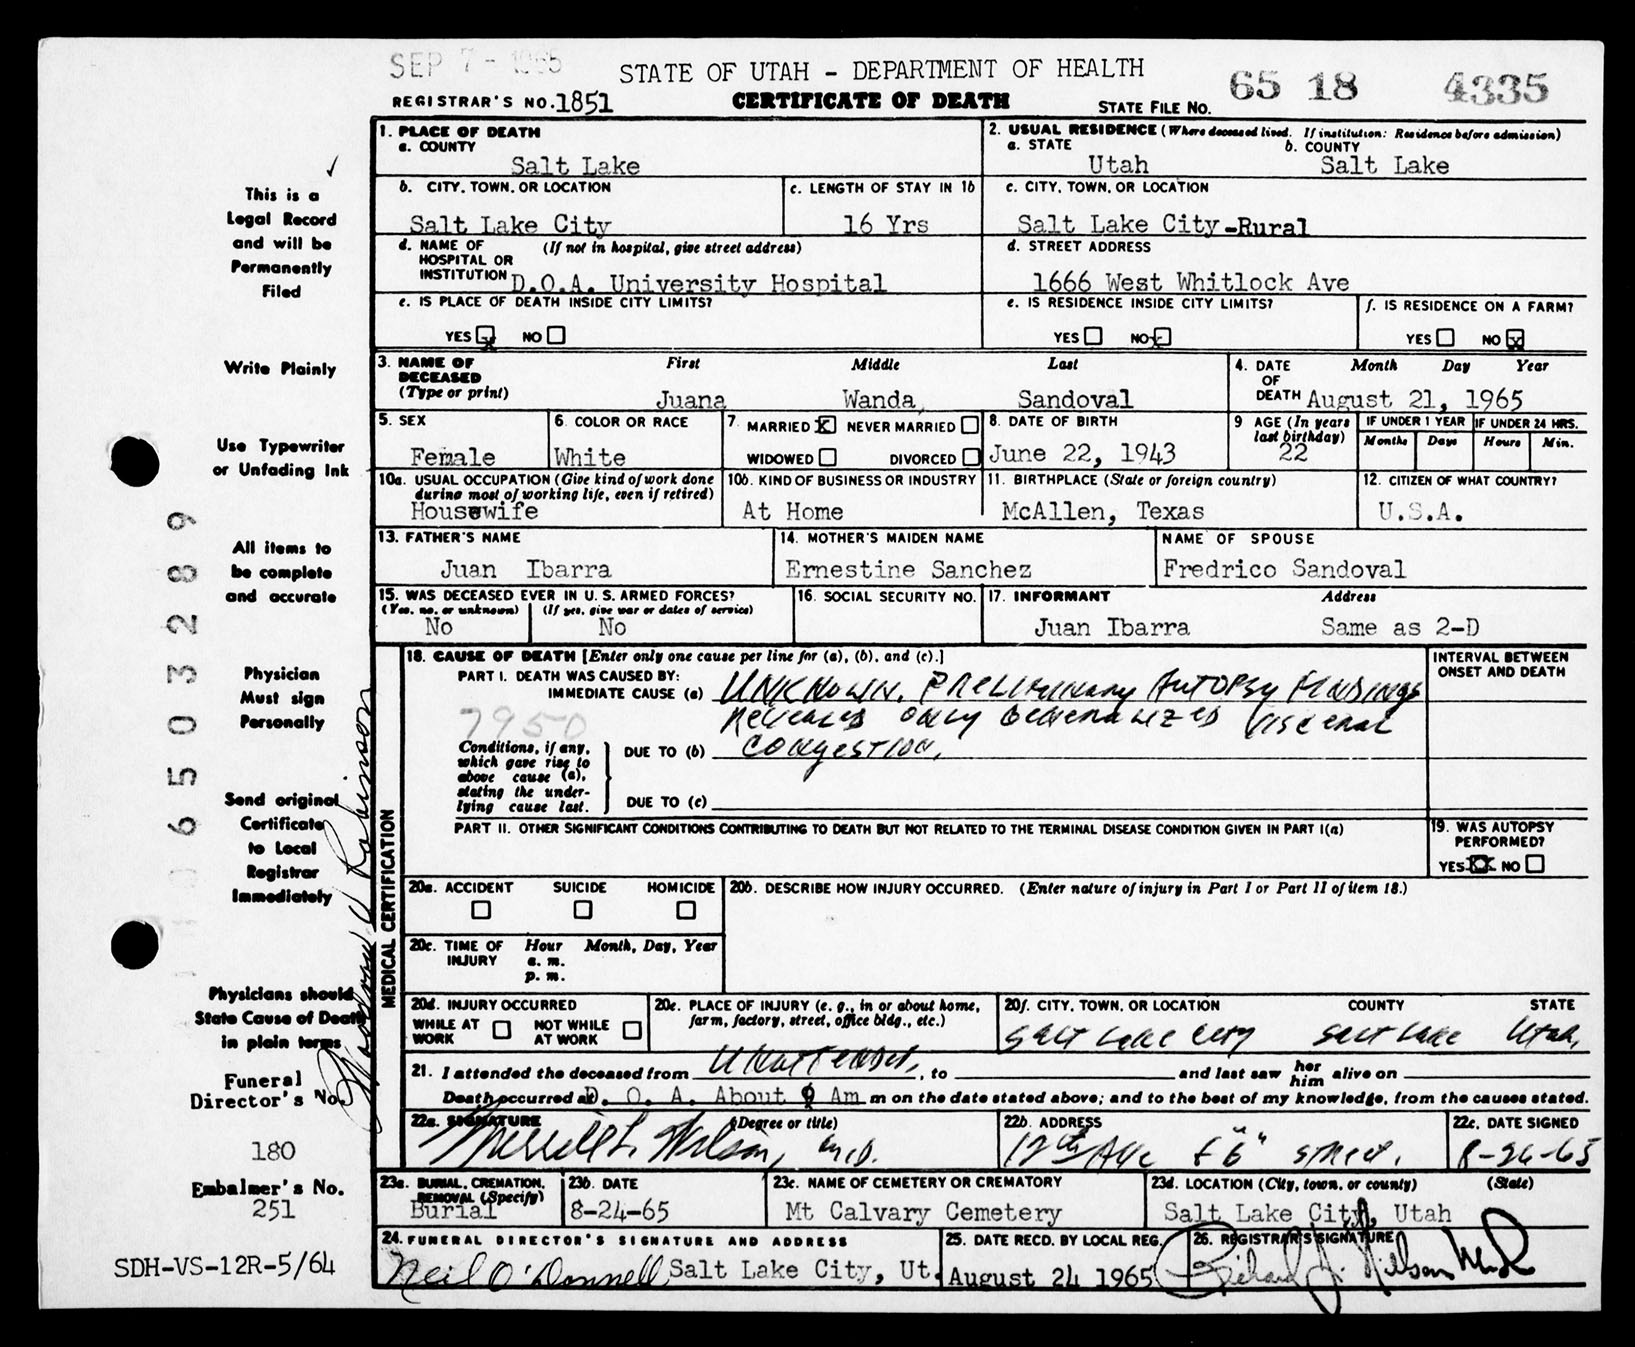 SEP 7 - 1965
STATE OF UTAH - DEPARTMENT OF HEALTH
65 18 4335
REGISTRAR'S NO. 1851
CERTIFICATE OF DEATH
STATE FILE NO.
1. PLACE OF DEATH
a. COUNTY
Salt Lake
2. USUAL RESIDENCE (Where deceased lived. If institution: Residence before admission)
a. STATE b. COUNTY
Utah Salt Lake
b. CITY, TOWN, OR LOCATION
Salt Lake City
c. LENGTH OF STAY IN 1b
16 Yrs
c. CITY, TOWN, OR LOCATION
Salt Lake City-Rural
d. NAME OF HOSPITAL OR INSTITUTION (If not in hospital, give street address)
D.O.A. University Hospital
d. STREET ADDRESS
1666 West Whitlock Ave
e. IS PLACE OF DEATH INSIDE CITY LIMITS?
YES X NO
e. IS RESIDENCE INSIDE CITY LIMITS?
YES NO X
f. IS RESIDENCE ON A FARM?
YES NO X
3. NAME OF DECEASED (Type or print)
First Middle Last
Juana Wanda, Sandoval
4. DATE OF DEATH
Month Day Year
August 21, 1965
5. SEX
Female
6. COLOR OR RACE
White
7. MARRIED X NEVER MARRIED
WIDOWED DIVORCED
8. DATE OF BIRTH
June 22, 1943
9 AGE (In years last birthday)
22
IF UNDER 1 YEAR
Months Days
IF UNDER 24 HRS.
Hours Min.
10a. USUAL OCCUPATION (Give kind of work done during most of working life, even if retired)
Housewife
10b. KIND OF BUSINESS OR INDUSTRY
At Home
11. BIRTHPLACE (State or foreign country)
McAllen, Texas
12. CITIZEN OF WHAT COUNTRY?
U.S.A.
13. FATHER'S NAME
Juan Ibarra
14. MOTHER'S MAIDEN NAME
Ernestine Sanchez
NAME OF SPOUSE
Fredrico Sandoval
15. WAS DECEASED EVER IN U. S. ARMED FORCES?
(Yes, no, or unknown) (If yes, give war or dates of service)
No No
16. SOCIAL SECURITY NO.
17. INFORMANT Address
Juan Ibarra Same as 2-D
MEDICAL CERTIFICATION
18. CAUSE OF DEATH [Enter only one cause per line for (a), (b), and (c).]
INTERVAL BETWEEN ONSET AND DEATH
PART I. DEATH WAS CAUSED BY:
IMMEDIATE CAUSE (a) UNKNOWN. PRELIMINARY AUTOPSY FINDINGS
7950
REVEALED ONLY GENERALIZED VISCERAL
DUE TO (b) CONGESTION.
Conditions, if any, which gave rise to above cause (a), stating the underlying cause last.
DUE TO (c)
PART II. OTHER SIGNIFICANT CONDITIONS CONTRIBUTING TO DEATH BUT NOT RELATED TO THE TERMINAL DISEASE CONDITION GIVEN IN PART I(a)
19. WAS AUTOPSY PERFORMED?
YES XX NO
20a. ACCIDENT SUICIDE HOMICIDE
20b. DESCRIBE HOW INJURY OCCURRED. (Enter nature of injury in Part I or Part II of item 18.)
20c. TIME OF INJURY
Hour Month, Day, Year
a. m.
p. m.
20d. INJURY OCCURRED
WHILE AT WORK NOT WHILE AT WORK
20e. PLACE OF INJURY (e. g., in or about home, farm, factory, street, office bldg., etc.)
20f. CITY, TOWN, OR LOCATION COUNTY STATE
SALT LAKE CITY SALT LAKE UTAH,
21. I attended the deceased from UNATTENDED, , to and last saw her him alive on
Death occurred at D. O. A. About 9 Am m on the date stated above; and to the best of my knowledge, from the causes stated.
22a. SIGNATURE (Degree or title)
Merrill L. Wilson, M.D.
22b. ADDRESS
12th Ave & "E" STREET.
22c. DATE SIGNED
8-26-65
23a. BURIAL, CREMATION, REMOVAL (Specify)
Burial
23b. DATE
8-24-65
23c. NAME OF CEMETERY OR CREMATORY
Mt Calvary Cemetery
23d. LOCATION (City, town, or county) (State)
Salt Lake City, Utah
24. FUNERAL DIRECTOR'S SIGNATURE AND ADDRESS
Neil O'Donnell Salt Lake City, Ut.
25. DATE RECD. BY LOCAL REG.
August 24 1965
26. REGISTRAR'S SIGNATURE
This is a
Legal Record
and will be
Permanently
Filed
Write Plainly
Use Typewriter
or Unfading Ink
All items to
be complete
and accurate
Physician
Must sign
Personally
Send original
Certificate
to Local
Registrar
Immediately
Physicians should
State Cause of Death
in plain terms
Funeral
Director's No.
180
Embalmer's No.
251
SDH-VS-12R-5/64